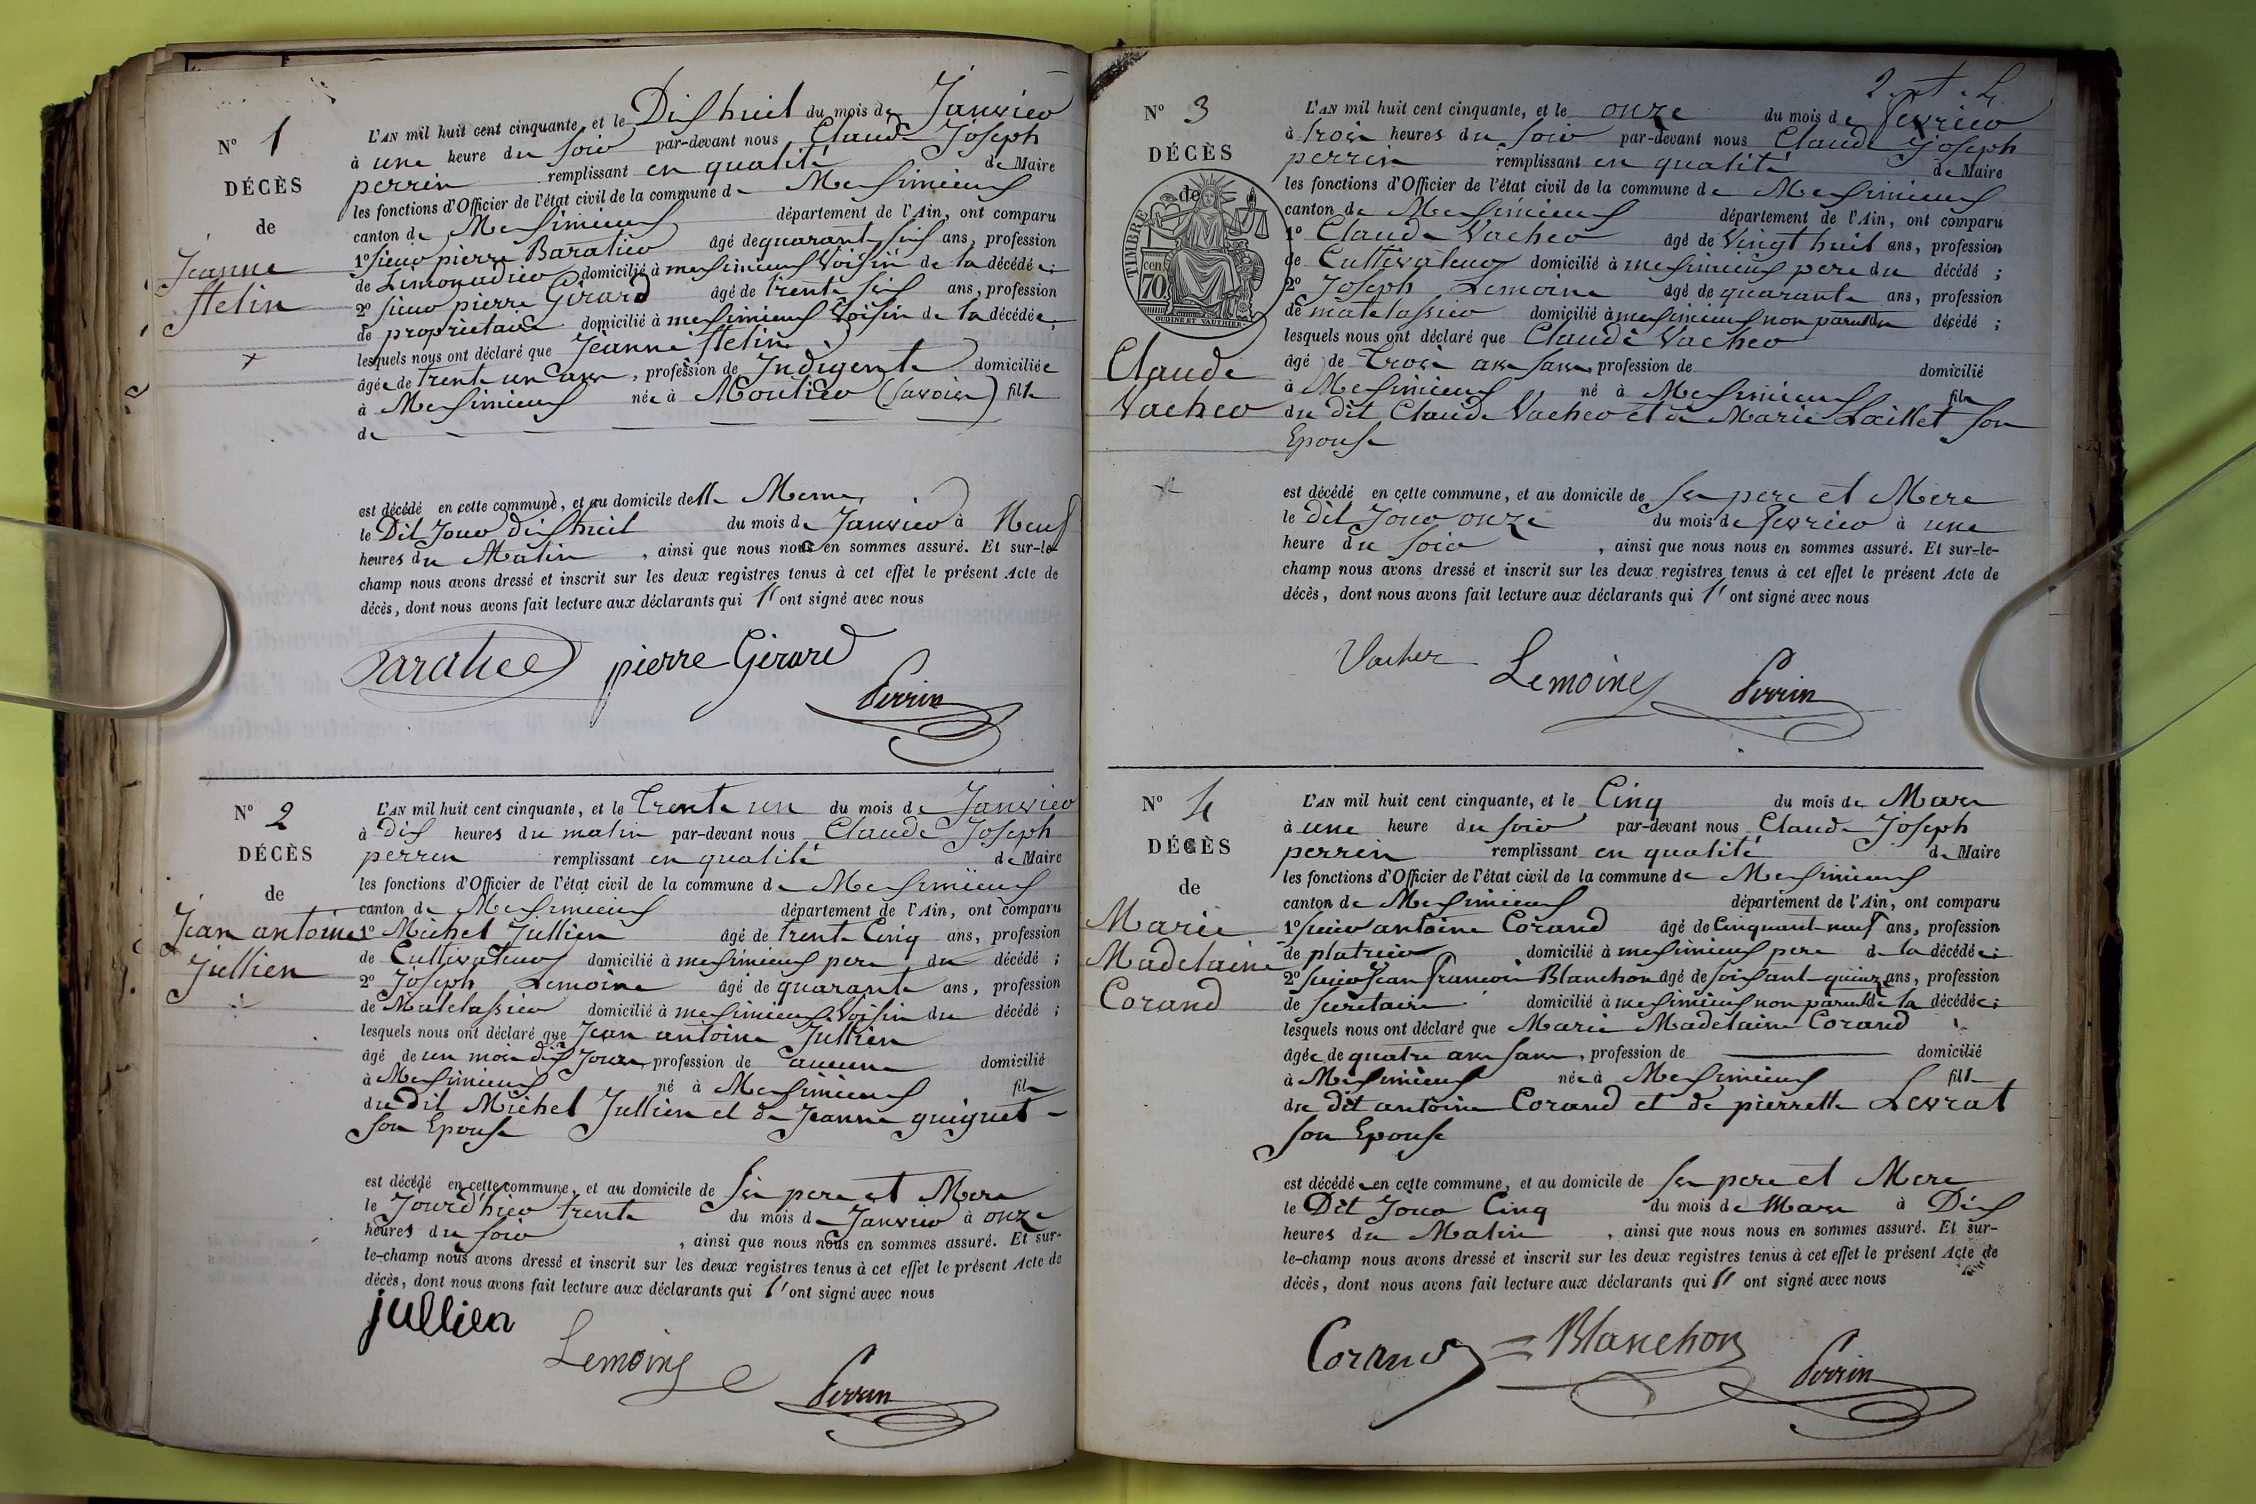 N° 1
DÉCÈS
de
Jeanne
Stelin
L'AN mil huit cent cinquante, et le Dixhuit du mois de Janvier
à une heure du soir par-devant nous Claude Joseph
perrin remplissant en qualité de Maire
les fonctions d'Officier de l'état civil de la commune de Meximieux
canton de Meximieux département de l'Ain, ont comparu
1° sieur pierre Baratier âgé de quarant six ans, profession
de Limonadier domicilié à meximieux Voisin de la décédée;
2° sieur pierre Girard âgé de trente six ans, profession
de proprietaire domicilié à meximieux Voisin de la décédée,
lesquels nous ont déclaré que Jeanne Stelin
âgée de trente un ans, profession de Indigente domiciliée
à Meximieux née à Moutier (Savoie) fille
de — — — — — — —
est décédé en cette commune, et au domicile delle Meme
le Dit Jour dixhuit du mois de Janvier à Neuf
heures du Matin, ainsi que nous nous en sommes assuré. Et sur-le-
champ nous avons dressé et inscrit sur les deux registres tenus à cet effet le présent Acte de
décès, dont nous avons fait lecture aux déclarants qui l'ont signé avec nous
Baratier pierre Girard
Perrin
N° 2
DÉCÈS
de
Jean antoine
Jullien
L'AN mil huit cent cinquante, et le Trente un du mois de Janvier
à dix heures du matin par-devant nous Claude Joseph
perrin remplissant en qualité de Maire
les fonctions d'Officier de l'état civil de la commune de Meximieux
canton de Meximieux département de l'Ain, ont comparu
1° Michel Jullien âgé de trente Cinq ans, profession
de Cultivateur domicilié à meximieux pere du décédé;
2° Joseph Lemoine âgé de quarante ans, profession
de Matelassier domicilié à meximieux Voisin du décédé;
lesquels nous ont déclaré que Jean antoine Jullien
âgé de un mois dix Jours, profession de aucune domicilié
à Meximieux né à Meximieux fils
du dit Michel Jullien et de Jeanne guiguet
son Epouse
est décédé en cette commune, et au domicile de ses pere et Mere
le Jourd'hier trente du mois de Janvier à onze
heures du soir, ainsi que nous nous en sommes assuré. Et sur-
le-champ nous avons dressé et inscrit sur les deux registres tenus à cet effet le présent Acte de
décès, dont nous avons fait lecture aux déclarants qui l'ont signé avec nous
jullien
Lemoine
Perrin
N° 3
DÉCÈS
de
TIMBRE
cent
70
OUDINÉ ET VAUTHIER
Claude
Vacher
L'AN mil huit cent cinquante, et le onze du mois de fevrier
à trois heures du soir par-devant nous Claude Joseph
perrin remplissant en qualité de Maire
les fonctions d'Officier de l'état civil de la commune de Meximieux
canton de Meximieux département de l'Ain, ont comparu
1° Claude Vacher âgé de Vingt huit ans, profession
de Cultivateur domicilié à meximieux pere du décédé;
2° Joseph Lemoine âgé de quarante ans, profession
de matelassier domicilié à meximieux non parent du décédé;
lesquels nous ont déclaré que Claude Vacher
âgé de Trois ans sans profession de domicilié
à Meximieux né à Meximieux fils
du dit Claude Vacher et de Marie Laillet son
Epouse
est décédé en cette commune, et au domicile de ses pere et Mere
le dit Jour onze du mois de fevrier à une
heure du soir, ainsi que nous nous en sommes assuré. Et sur-le-
champ nous avons dressé et inscrit sur les deux registres tenus à cet effet le présent Acte de
décès, dont nous avons fait lecture aux déclarants qui l'ont signé avec nous
Vacher Lemoine Perrin
N° 4
DÉCÈS
de
Marie
Madelaine
Corand
L'AN mil huit cent cinquante, et le Cinq du mois de Mars
à une heure du soir par-devant nous Claude Joseph
perrin remplissant en qualité de Maire
les fonctions d'Officier de l'état civil de la commune de Meximieux
canton de Meximieux département de l'Ain, ont comparu
1° sieur antoine Corand âgé de Cinquant neuf ans, profession
de platrier domicilié à meximieux pere de la décédée;
2° sieur Jean Francois Blanchon âgé de soixant quinz ans, profession
de secretaire domicilié à meximieux non parent de la décédée;
lesquels nous ont déclaré que Marie Madelaine Corand
âgée de quatre ans sans, profession de domicilié
à Meximieux née à Meximieux fille
du dit antoine Corand et de pierrette Levrat
son Epouse
est décédée en cette commune, et au domicile de ses pere et Mere
le Dit Jour Cinq du mois de Mars à Dix
heures du Matin, ainsi que nous nous en sommes assuré. Et sur-
le-champ nous avons dressé et inscrit sur les deux registres tenus à cet effet le présent Acte de
décès, dont nous avons fait lecture aux déclarants qui l'ont signé avec nous
Corand Blanchon Perrin